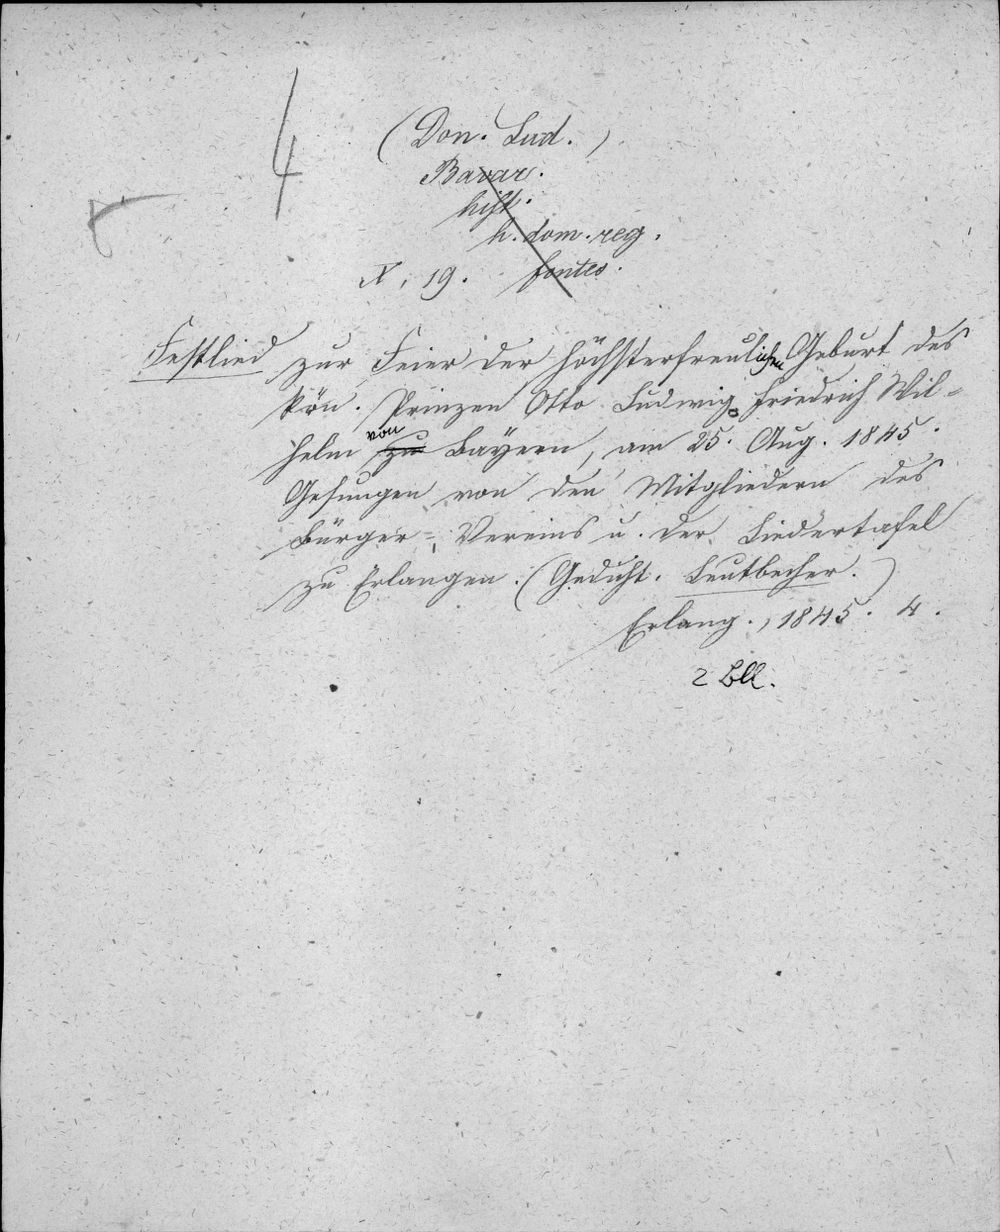 4
(Don. Lud.)
Bavar.
hist.
h. dom. reg.
X, 19. fontes.
Festlied zur Feier der höchsterfreulichen Geburt des
kön. Prinzen Otto Ludwig Friedrich Wil-
helm zu von Bayern, am 25. Aug. 1845.
Gesungen von den Mitgliedern des
Bürger-Vereins u. der Liedertafel
zu Erlangen. (Gedicht. Leutbecher.)
Erlang., 1845. 4.
2 Bll.